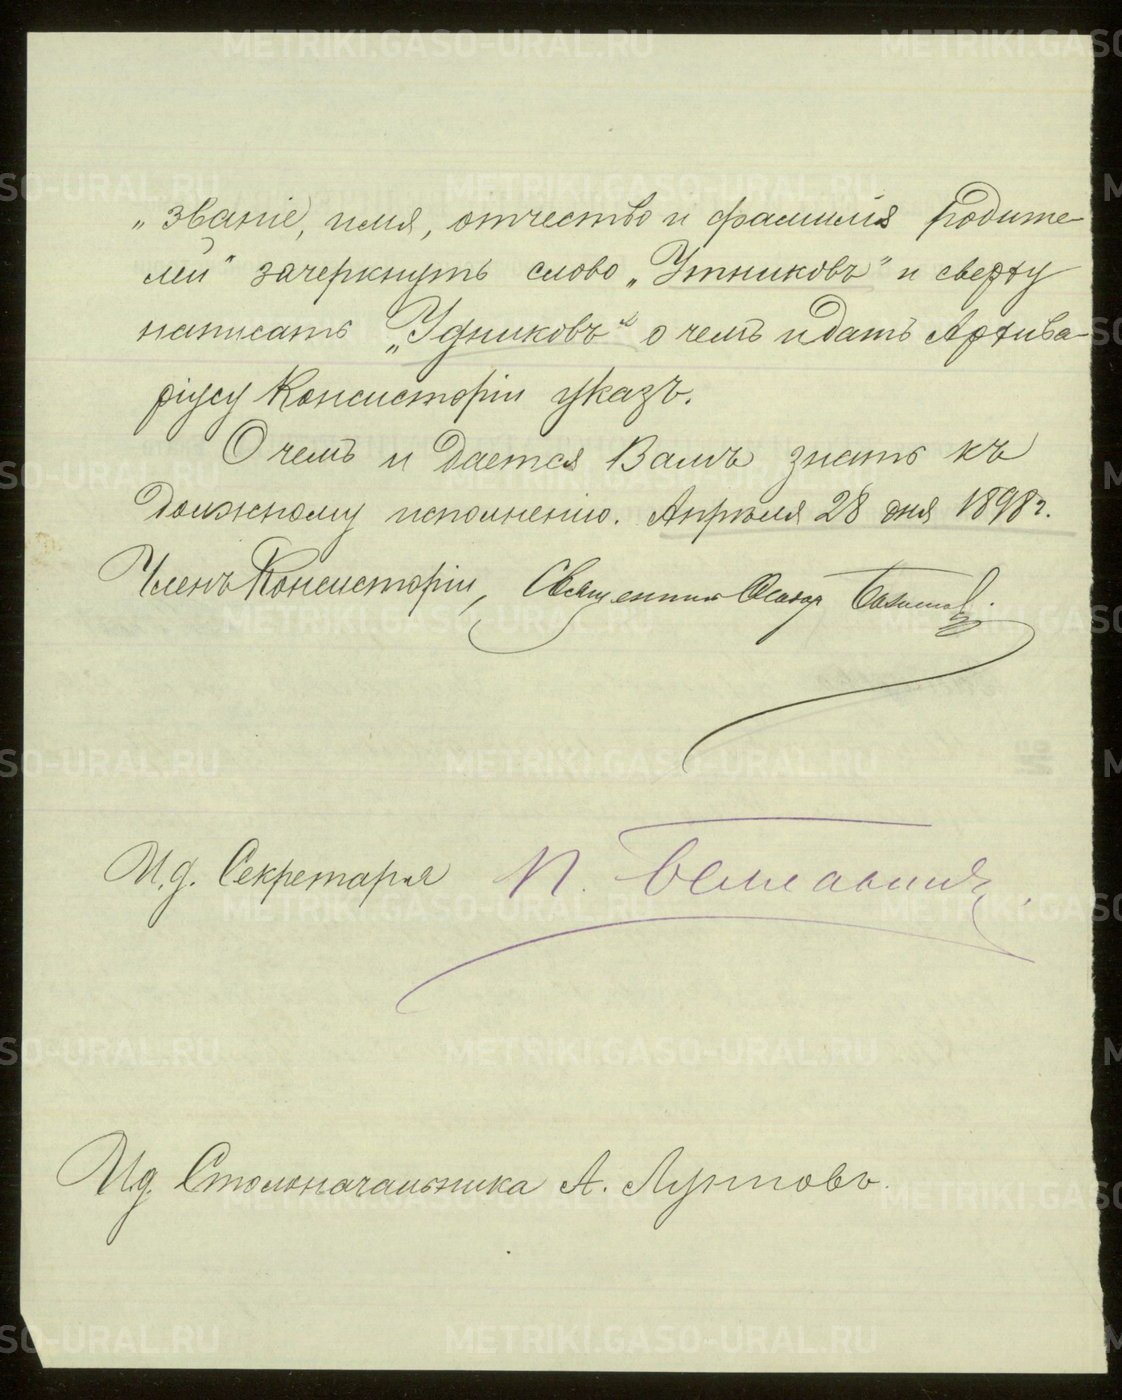 „званіе, имя, отчество и фамилія родите-
лей" зачеркнуть слово „Утниковъ" и сверху
написать „Удниковъ" о чемъ и дать Архива-
ріусу Консисторіи указъ.
О чемъ и дается Вамъ знать къ
должному исполненію. Апрѣля 28 дня 1898 г.
Членъ Консисторіи, Священникъ
И.д. Секретаря П.
И.д. Столоначальника А.
METRIKI.GASO-URAL.RU